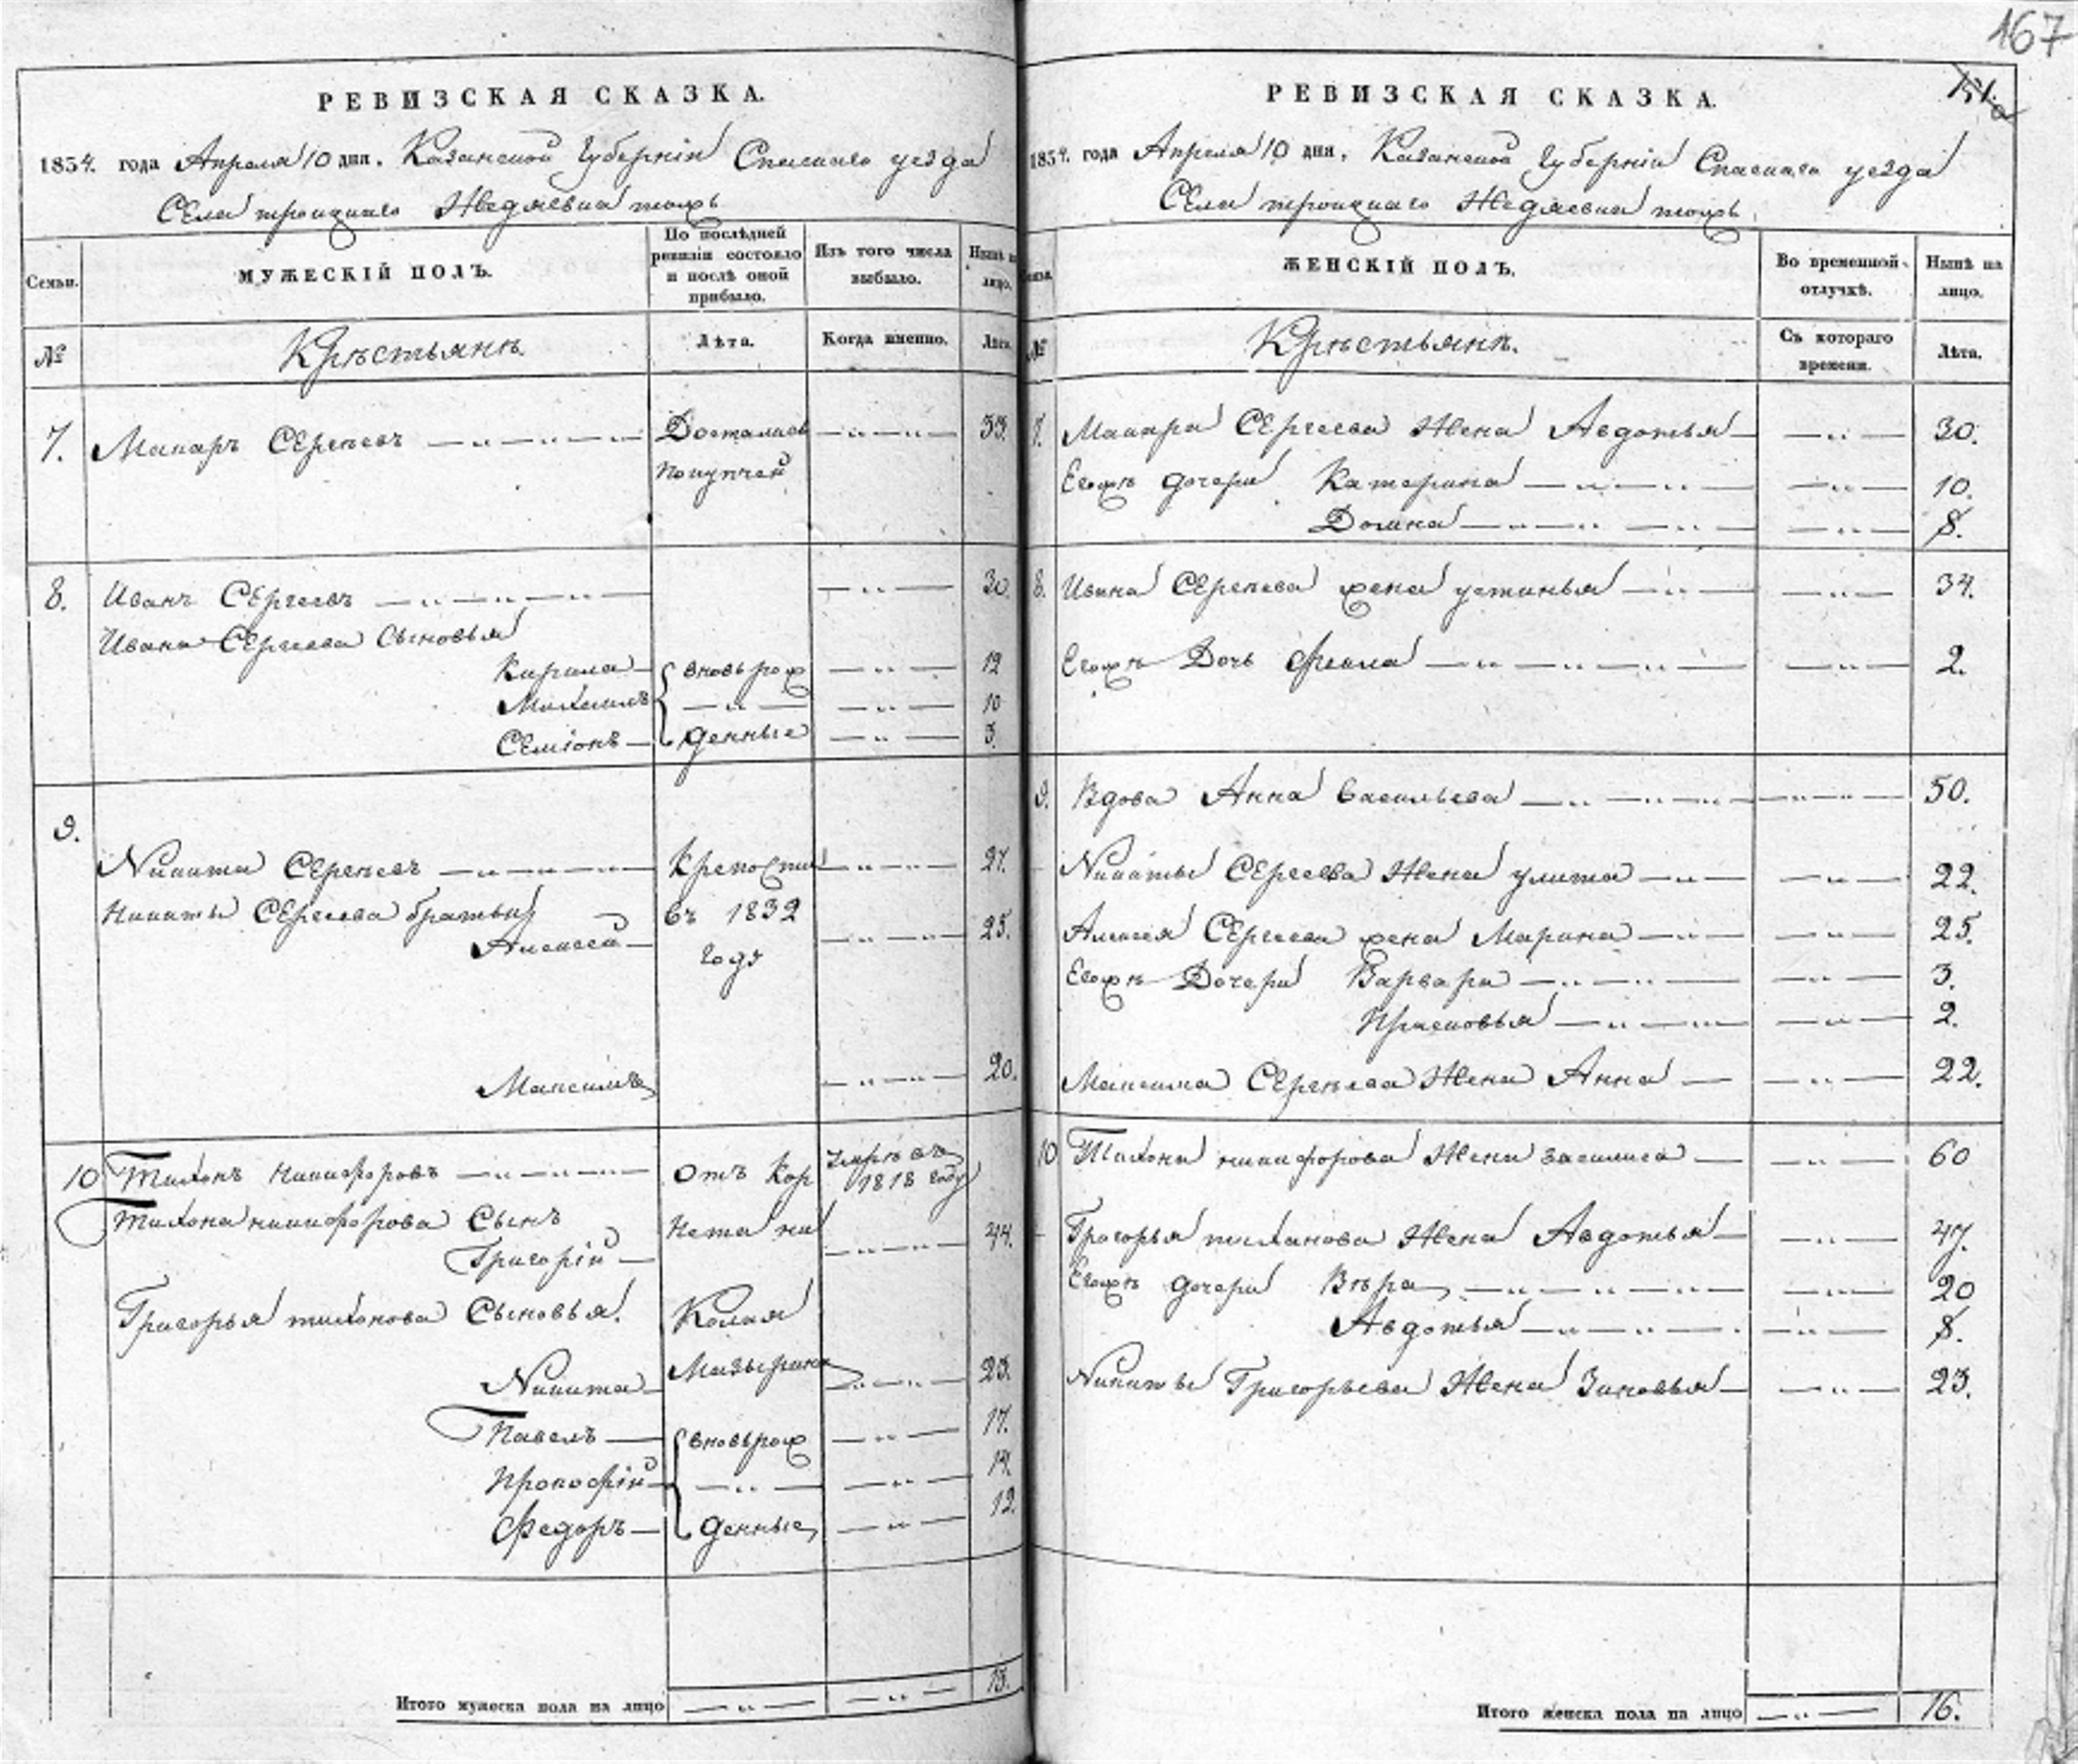 167
РЕВИЗСКАЯ СКАЗКА.
1834. года Апреля 10 дня. Казанской Губернiи Спаскаго уезда
Села троицкаго
Семьи.
МУЖЕСКIЙ ПОЛЪ.
По послѣдней ревизiи состояло и послѣ оной прибыло.
Изъ того числа выбыло.
Нынѣ на лицо.
№
Крѣстьянѣ.
Лѣта.
Когда именно.
Лѣта.
7. Макаръ Сергѣевъ Достался 33.
покупкей
8. Иванъ Сергеевъ 30.
Ивана Сергеева Сыновья
Кирила вновь рож 12
10
Семiонъ денные 3.
9.
Никита Сергѣевъ Крепости 27.
Никиты Сергеева братья въ 1832
Алексей году 25.
Максимъ 20.
10 Тихонъ Никифоровъ отъ Кор умрѣ въ 1818 году
Тихона никифорова Сынъ
Григорiй 44.
Григорья тихонова Сыновья.
Никита 23.
Павелъ вновь рож 17.
Прокофiй 14.
Федоръ денные 12.
Итого мужеска пола на лицо 13.
РЕВИЗСКАЯ СКАЗКА.
1834. года Апреля 10 дня. Казанской Губернiи Спаскаго уезда
Села троицкаго
№
ЖЕНСКIЙ ПОЛЪ.
Во временной отлучкѣ.
Нынѣ на лицо.
Крѣстьянѣ.
Съ котораго времени.
Лѣта.
7. Макара Сергеева Жена Авдотья 30.
Егожѣ дочери Катерина 10.
Домна 8.
8. Ивана Сергѣева жена устинья 34.
Егожѣ Дочь Фекла 2.
9. Вдова Анна Васильева 50.
Никиты Сергеева Жена улита 22.
Алексея Сергеева жена Марина 25.
Егожѣ Дочери Варвара 3.
Прасковья 2.
Максима Сергѣева Жена Анна 22.
10 Тихона никифорова Жена василиса 60
Григорья тиханова Жена Авдотья 47.
Егожѣ дочери Вѣра 20
Авдотья 8.
Никиты Григорьева Жена Зиновья 23.
Итого женска пола на лицо 16.